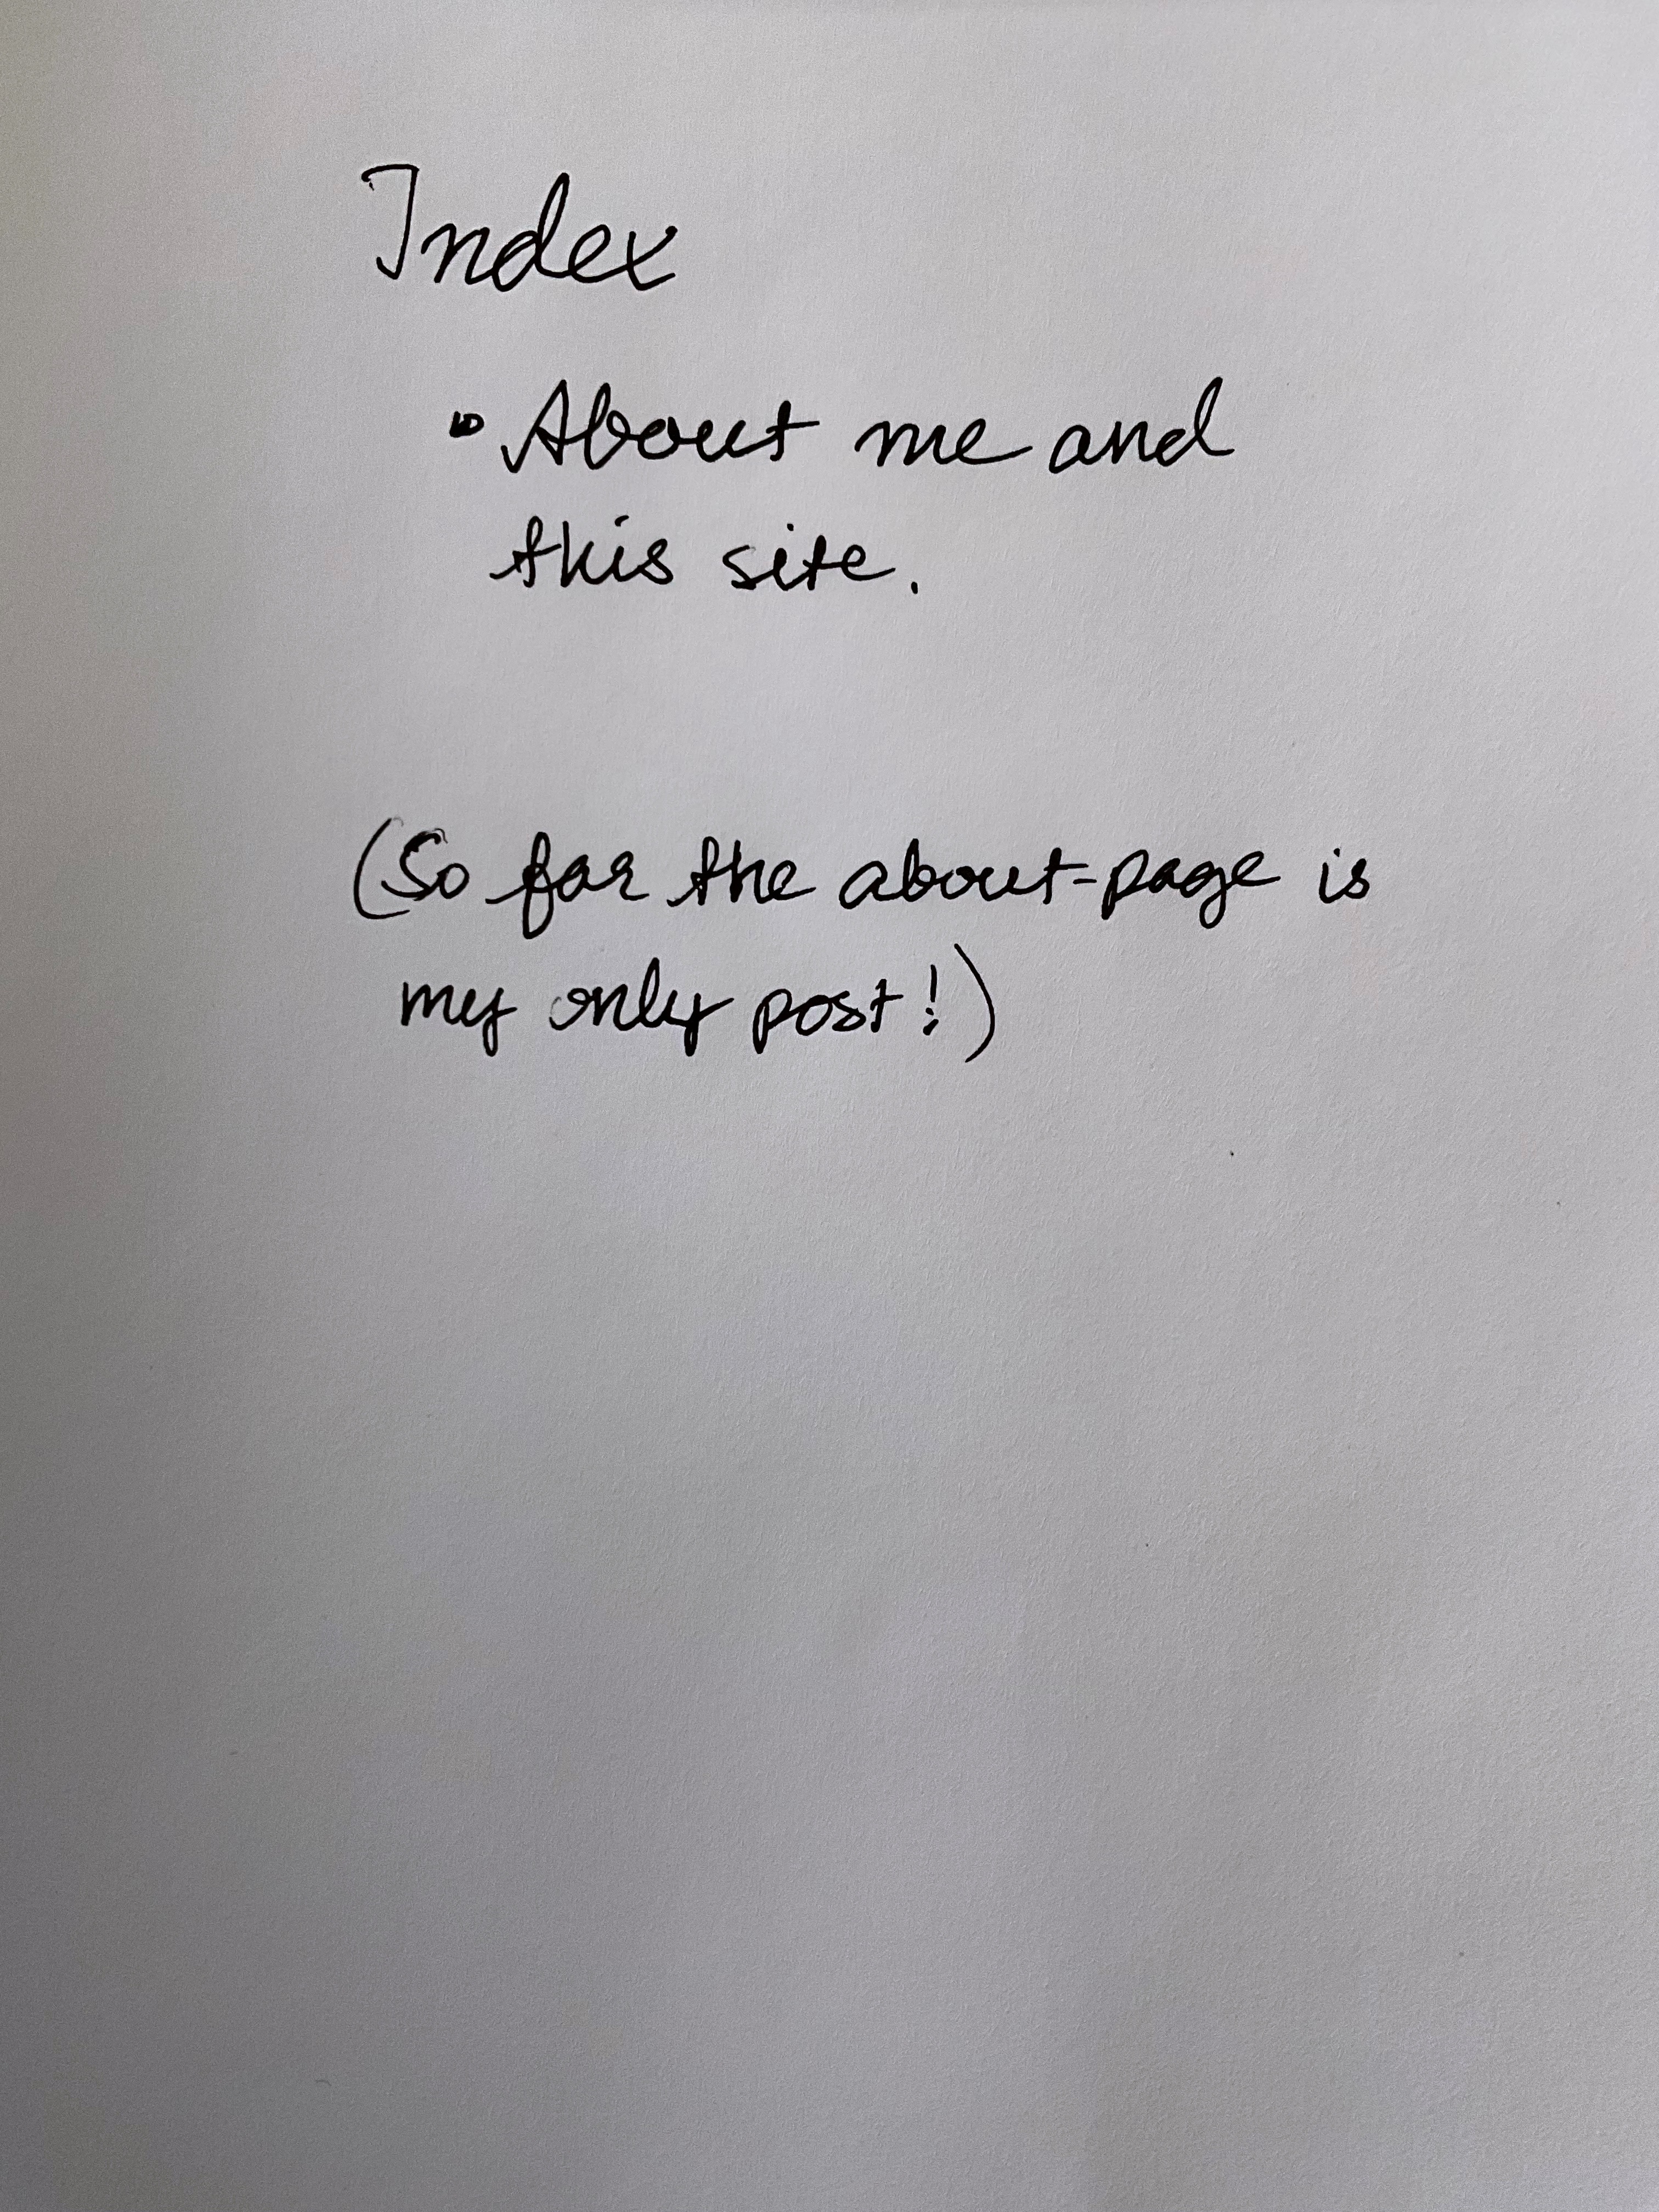 Index
• About me and
this site.
(So far the about-page is
my only post!)